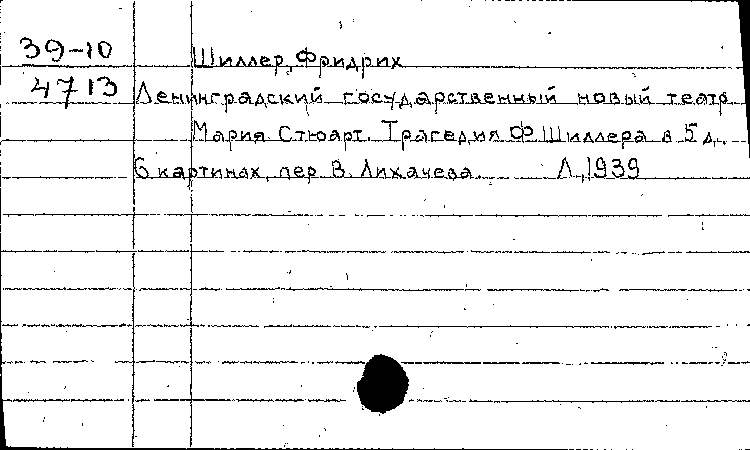 39-10 Шиллер, Фридрих
4713 Ленинградский государственный новый театр.
Мария Стюарт. Трагедия Ф. Шиллера в 5 д.
6 картинах, пер. В. Лихачева. Л, 1939